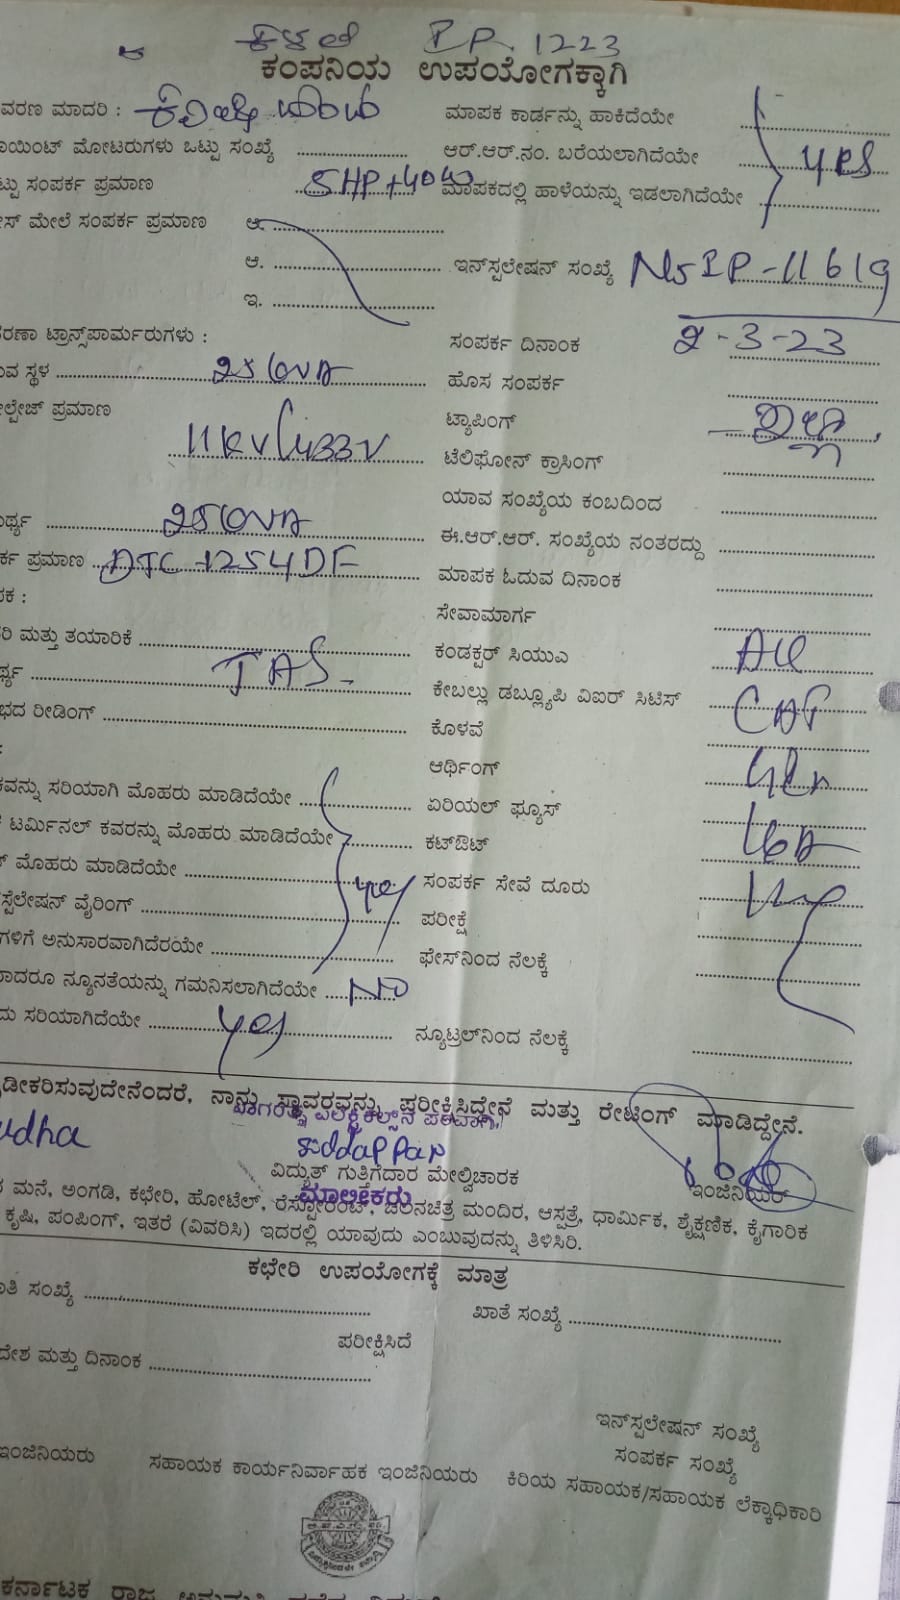 ಕಳಲೆ IP. 1223
ಕಂಪನಿಯ ಉಪಯೋಗಕ್ಕಾಗಿ
ವರಣ ಮಾದರಿ :
ಮಾಪಕ ಕಾರ್ಡನ್ನು ಹಾಕಿದೆಯೇ
ಾಯಿಂಟ್ ಮೋಟರುಗಳು ಒಟ್ಟು ಸಂಖ್ಯೆ
ಆರ್.ಆರ್.ನಂ. ಬರೆಯಲಾಗಿದೆಯೇ yes
ಟ್ಟು ಸಂಪರ್ಕ ಪ್ರಮಾಣ 5HP+40W
ಮಾಪಕದಲ್ಲಿ ಹಾಳೆಯನ್ನು ಇಡಲಾಗಿದೆಯೇ
ೇಸ್ ಮೇಲೆ ಸಂಪರ್ಕ ಪ್ರಮಾಣ ಅ.
ಆ.
ಇನ್‌ಸ್ಟಲೇಷನ್ ಸಂಖ್ಯೆ NSIP-11619
ಇ.
ರಣಾ ಟ್ರಾನ್ಸ್‌ಪಾರ್ಮರುಗಳು :
ಸಂಪರ್ಕ ದಿನಾಂಕ 2-3-23
ುವ ಸ್ಥಳ 25KVA
ಹೊಸ ಸಂಪರ್ಕ
ೋಲ್ಟೇಜ್ ಪ್ರಮಾಣ 11KV/433V
ಟ್ಯಾಪಿಂಗ್ ಇಲ್ಲ
ಟೆಲಿಫೋನ್ ಕ್ರಾಸಿಂಗ್
ಯಾವ ಸಂಖ್ಯೆಯ ಕಂಬದಿಂದ
ರ್ಥ್ಯ 25KVA
ಈ.ಆರ್.ಆರ್. ಸಂಖ್ಯೆಯ ನಂತರದ್ದು
ರ್ಕ ಪ್ರಮಾಣ DTC-1254DF
ಮಾಪಕ ಓದುವ ದಿನಾಂಕ
ಪಕ :
ಸೇವಾಮಾರ್ಗ
ರಿ ಮತ್ತು ತಯಾರಿಕೆ
ಕಂಡಕ್ಟರ್ ಸಿಯುಎ
ರ್ಥ್ಯ
ಕೇಬಲ್ಲು ಡಬ್ಲ್ಯೂಪಿ ವಿಐರ್ ಸಿಟಿಸ್
ಭದ ರೀಡಿಂಗ್
ಕೊಳವೆ
ಆರ್ಥಿಂಗ್
ಕವನ್ನು ಸರಿಯಾಗಿ ಮೊಹರು ಮಾಡಿದೆಯೇ
ಏರಿಯಲ್ ಫ್ಯೂಸ್
ಟರ್ಮಿನಲ್ ಕವರನ್ನು ಮೊಹರು ಮಾಡಿದೆಯೇ
ಕಟ್‌ಔಟ್
ಮೊಹರು ಮಾಡಿದೆಯೇ yes
ಸಂಪರ್ಕ ಸೇವೆ ದೂರು
ಸ್ಟೆಲೇಷನ್ ವೈರಿಂಗ್
ಪರೀಕ್ಷೆ
ಗಳಿಗೆ ಅನುಸಾರವಾಗಿದೆರಯೇ
ಫೇಸ್‌ನಿಂದ ನೆಲಕ್ಕೆ
ಾದರೂ ನ್ಯೂನತೆಯನ್ನು ಗಮನಿಸಲಾಗಿದೆಯೇ NO
ದು ಸರಿಯಾಗಿದೆಯೇ yes
ನ್ಯೂಟ್ರಲ್‌ನಿಂದ ನೆಲಕ್ಕೆ
ಡೀಕರಿಸುವುದೇನೆಂದರೆ, ನಾನು ಸ್ಥಾವರವನ್ನು ಪರೀಕ್ಷಿಸಿದ್ದೇನೆ ಮತ್ತು ರೇಟಿಂಗ್ ಮಾಡಿದ್ದೇನೆ.
udha
ವಿದ್ಯುತ್ ಗುತ್ತಿಗೆದಾರ ಮೇಲ್ವಿಚಾರಕ
ಇಂಜಿನಿಯರ್
ಮಾಲೀಕರು
ಮನೆ, ಅಂಗಡಿ, ಕಛೇರಿ, ಹೋಟೆಲ್, ರೆಸ್ಟೋರೆಂಟ್, ಚಲನಚಿತ್ರ ಮಂದಿರ, ಆಸ್ಪತ್ರೆ, ಧಾರ್ಮಿಕ, ಶೈಕ್ಷಣಿಕ, ಕೈಗಾರಿಕ
ಕೃಷಿ, ಪಂಪಿಂಗ್, ಇತರೆ (ವಿವರಿಸಿ) ಇದರಲ್ಲಿ ಯಾವುದು ಎಂಬುವುದನ್ನು ತಿಳಿಸಿರಿ.
ಕಛೇರಿ ಉಪಯೋಗಕ್ಕೆ ಮಾತ್ರ
ತಿ ಸಂಖ್ಯೆ
ಖಾತೆ ಸಂಖ್ಯೆ
ಪರೀಕ್ಷಿಸಿದೆ
ದೇಶ ಮತ್ತು ದಿನಾಂಕ
ಇನ್‌ಸ್ಪಲೇಷನ್ ಸಂಖ್ಯೆ
ಸಂಪರ್ಕ ಸಂಖ್ಯೆ
ಇಂಜಿನಿಯರು ಸಹಾಯಕ ಕಾರ್ಯನಿರ್ವಾಹಕ ಇಂಜಿನಿಯರು ಕಿರಿಯ ಸಹಾಯಕ/ಸಹಾಯಕ ಲೆಕ್ಕಾಧಿಕಾರಿ
ಕರ್ನಾಟಕ ರಾಜ್ಯ